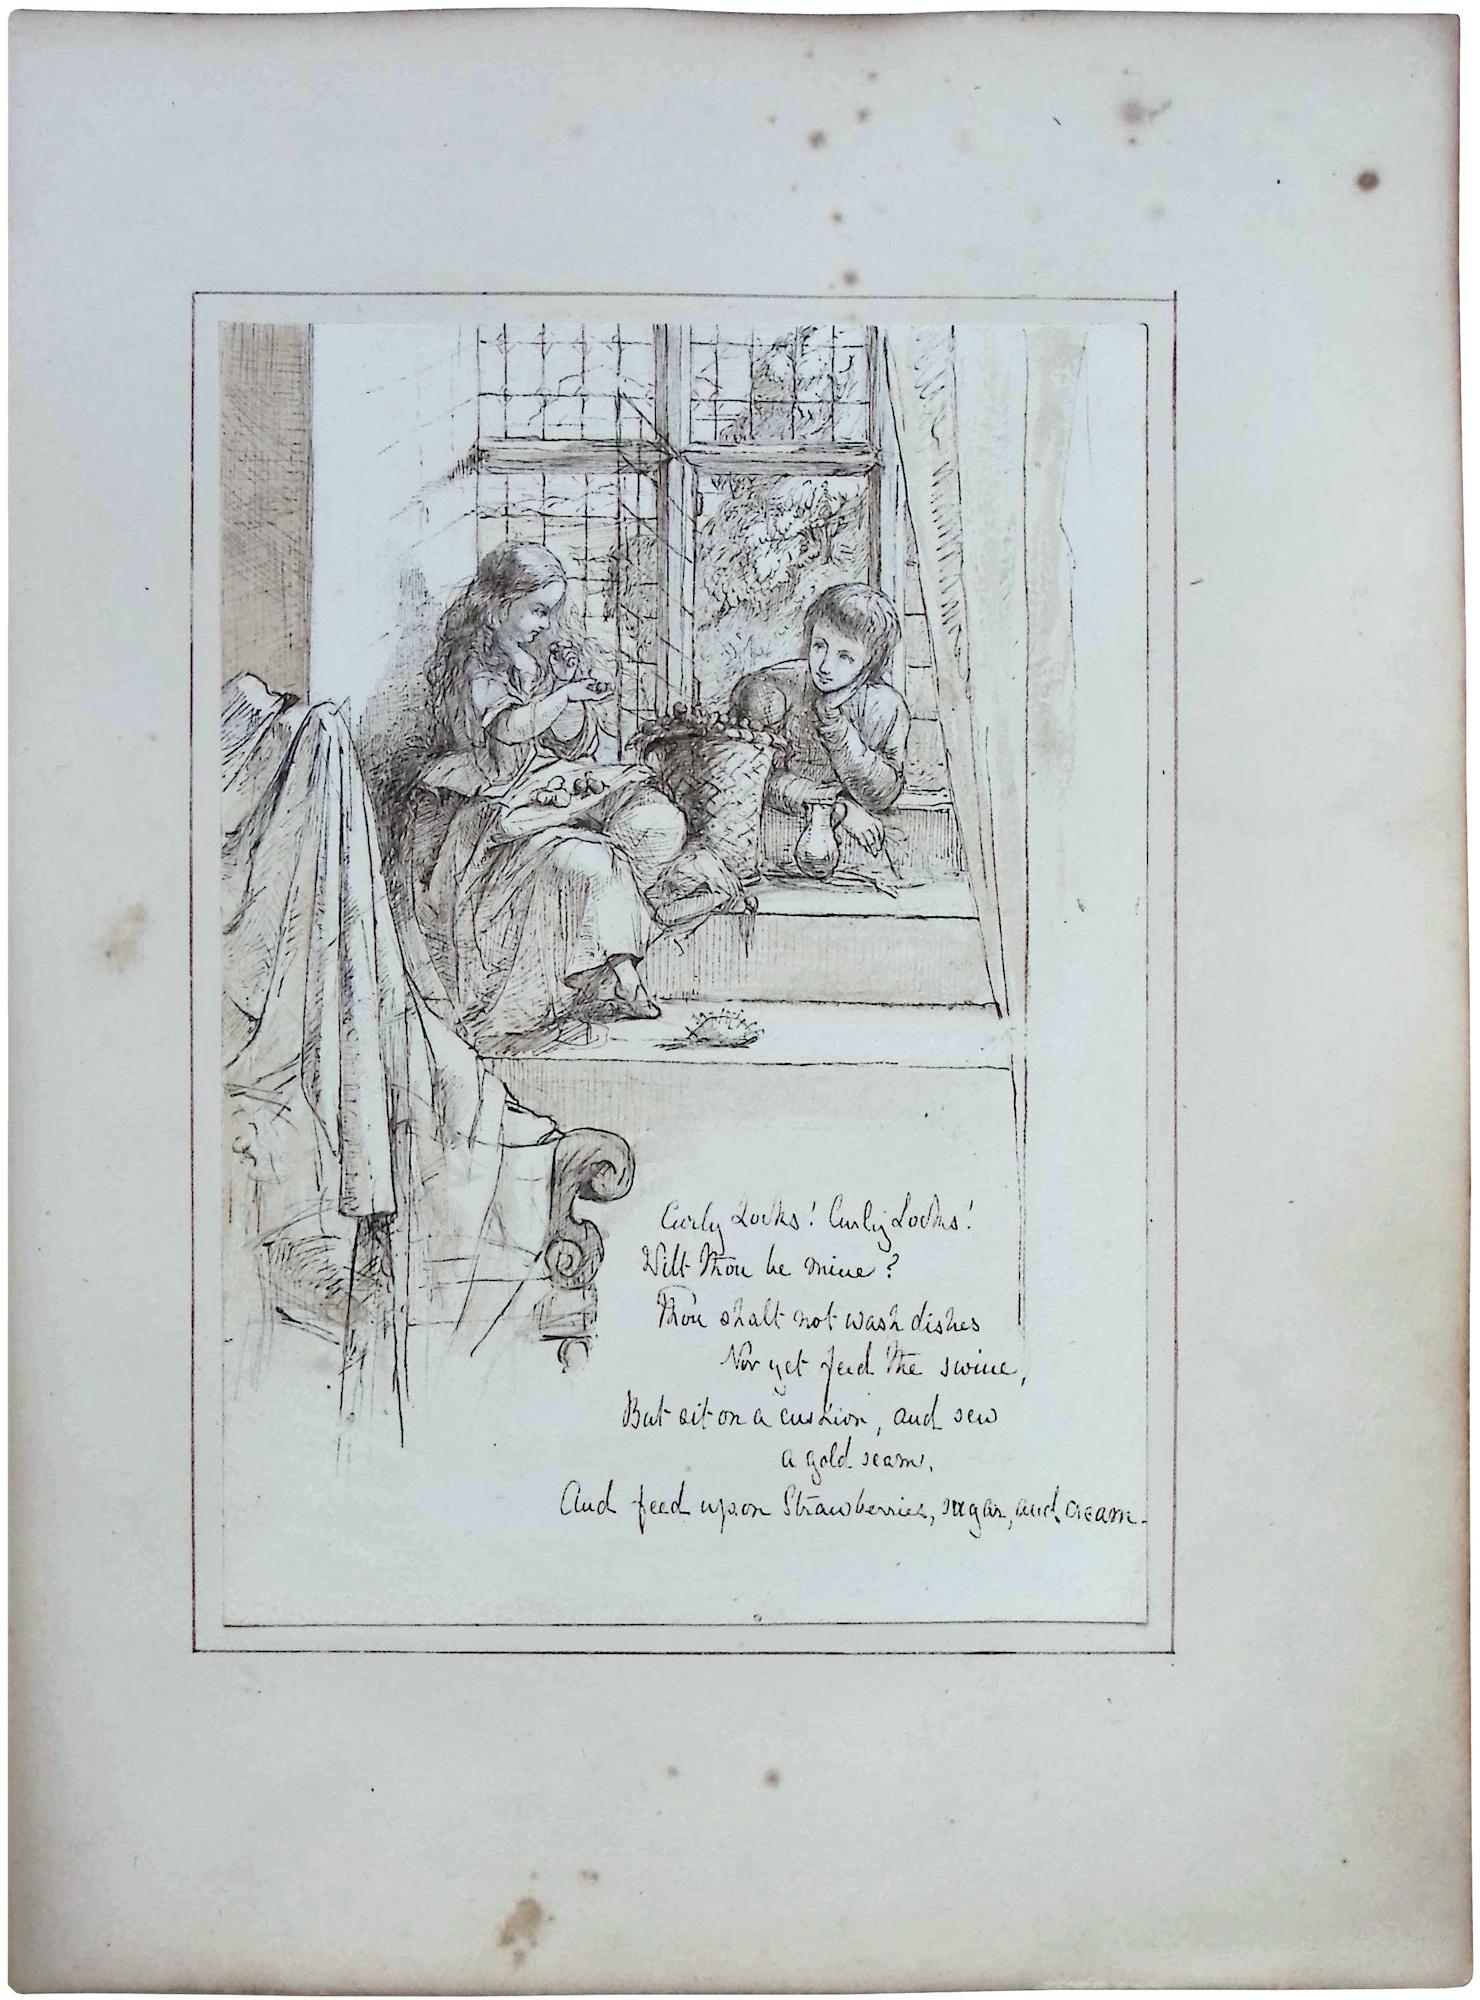 Curly Locks! Curly Locks!
Wilt Thou be mine?
Thou shalt not wash dishes
Nor yet feed The swine,
But sit on a cushion, and sew
a gold seam.
And feed upon Strawberries, sugar, and cream.